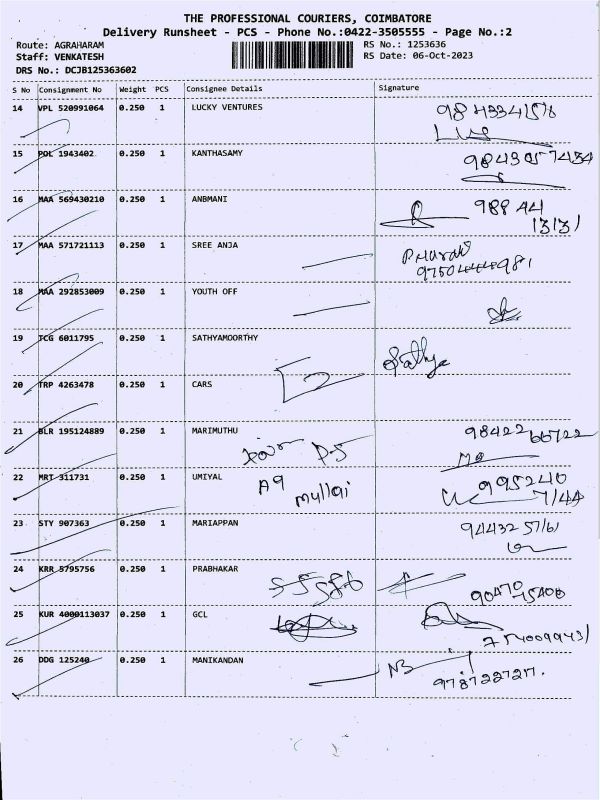 THE PROFESSIONAL COURIERS, COIMBATORE
Delivery Runsheet - PCS - Phone No.:0422-3505555 - Page No.:2
Route: AGRAHARAM
RS No.: 1253636
Staff: VENKATESH
RS Date: 06-Oct-2023
DRS No.: DCJB125363602
S No Consignment No Weight PCS Consignee Details Signature
14 VPL 520991064 0.250 1 LUCKY VENTURES
15 POL 1943402 0.250 1 KANTHASAMY
16 MAA 569430210 0.250 1 ANBMANI
988 441
13131
17 MAA 571721113 0.250 1 SREE ANJA
18 MAA 292853009 0.250 1 YOUTH OFF
19 TCG 6011795 0.250 1 SATHYAMOORTHY
Sathya
20 TRP 4263478 0.250 1 CARS
21 BLR 195124889 0.250 1 MARIMUTHU
98422 66722
22 MRT 311731 0.250 1 UMIYAL
A9
Mullai
995240
7144
23 STY 907363 0.250 1 MARIAPPAN
94432 57161
24 KRR 5795756 0.250 1 PRABHAKAR
90470
25 KUR 4000113037 0.250 1 GCL
26 DDG 125240 0.250 1 MANIKANDAN